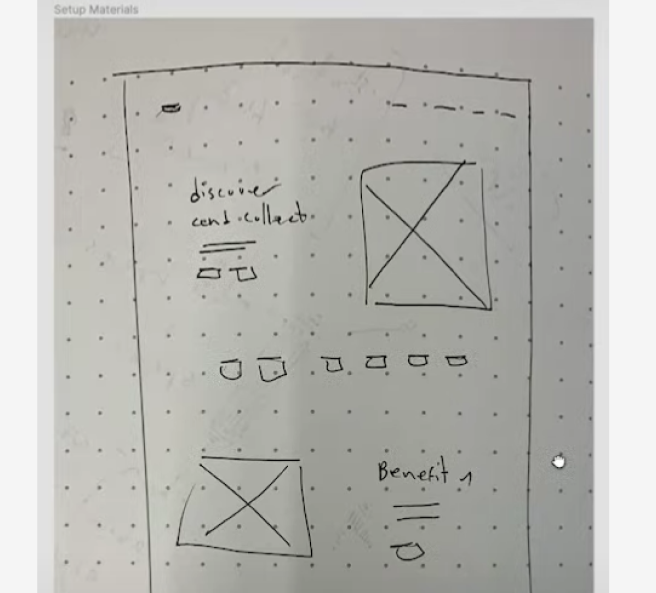 Setup Materials
discover
and collect
Benefit 1